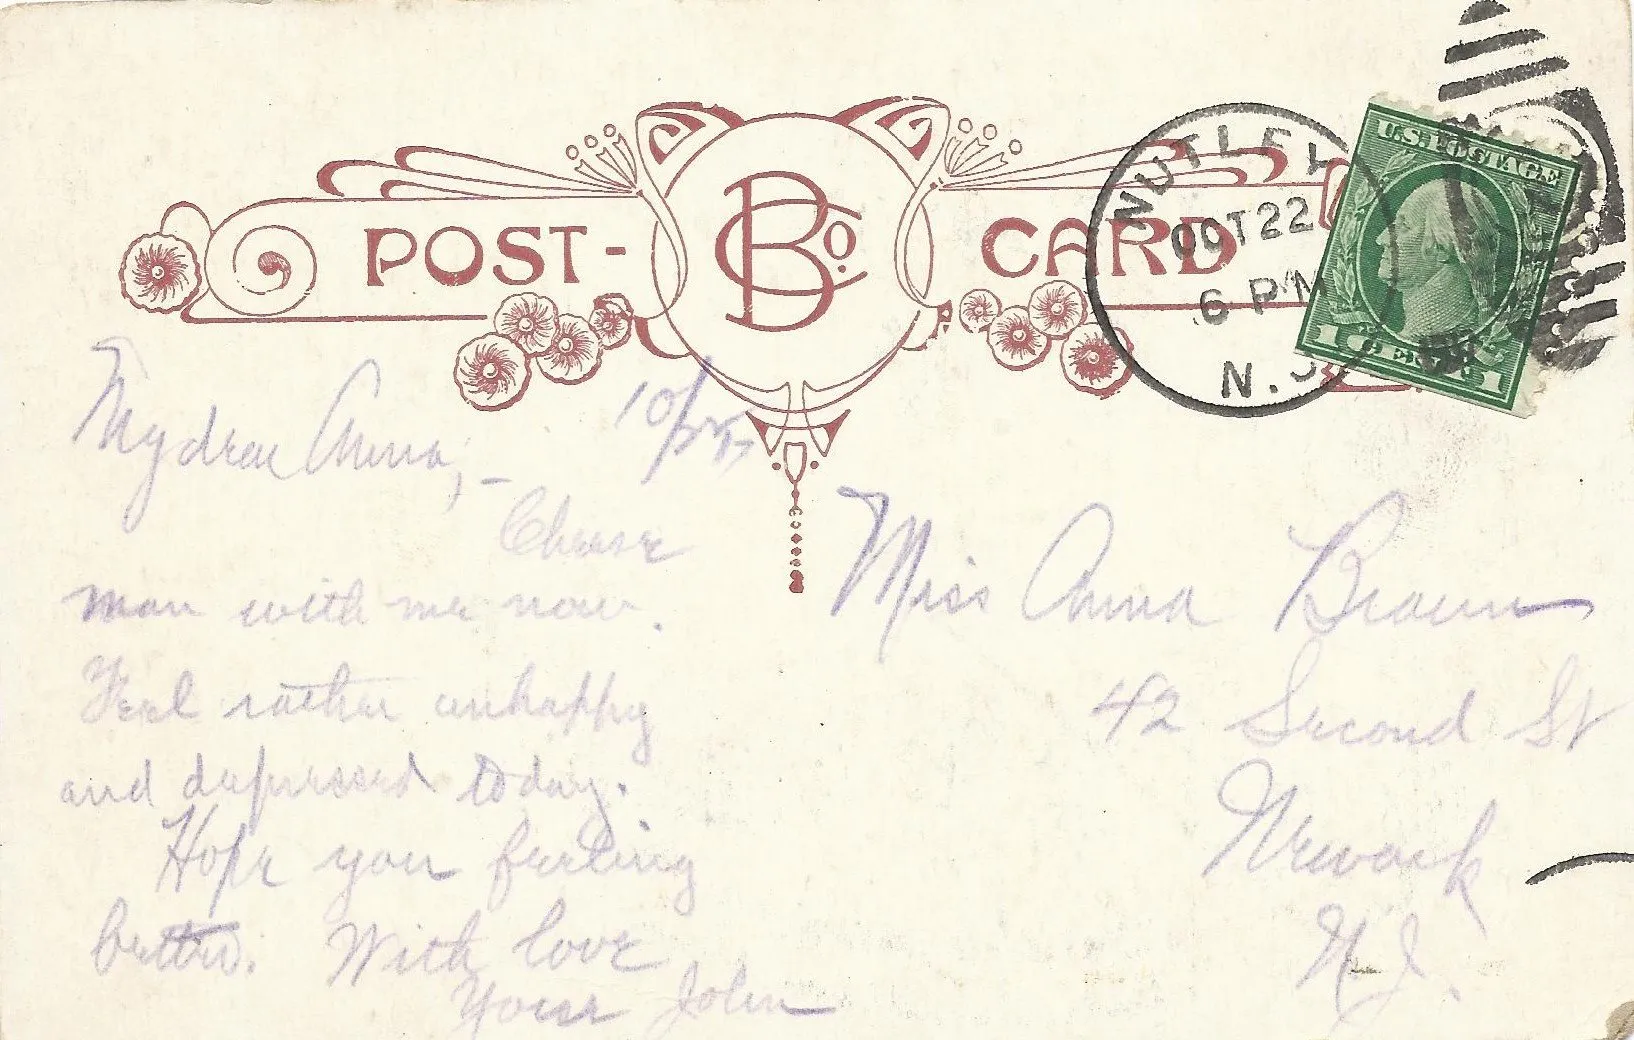 POST-CARD
B Co.
NUTLEY
OCT 22
6 PM
N.J
U.S. POSTAGE
1 CENT 1
My dear Anna, -
10/22
Cheese
man with me now.
Feel rather unhappy
and depressed today.
Hope you feeling
better. With love
Your John
Miss Anna Brown
42 Second St
Newark
N.J.